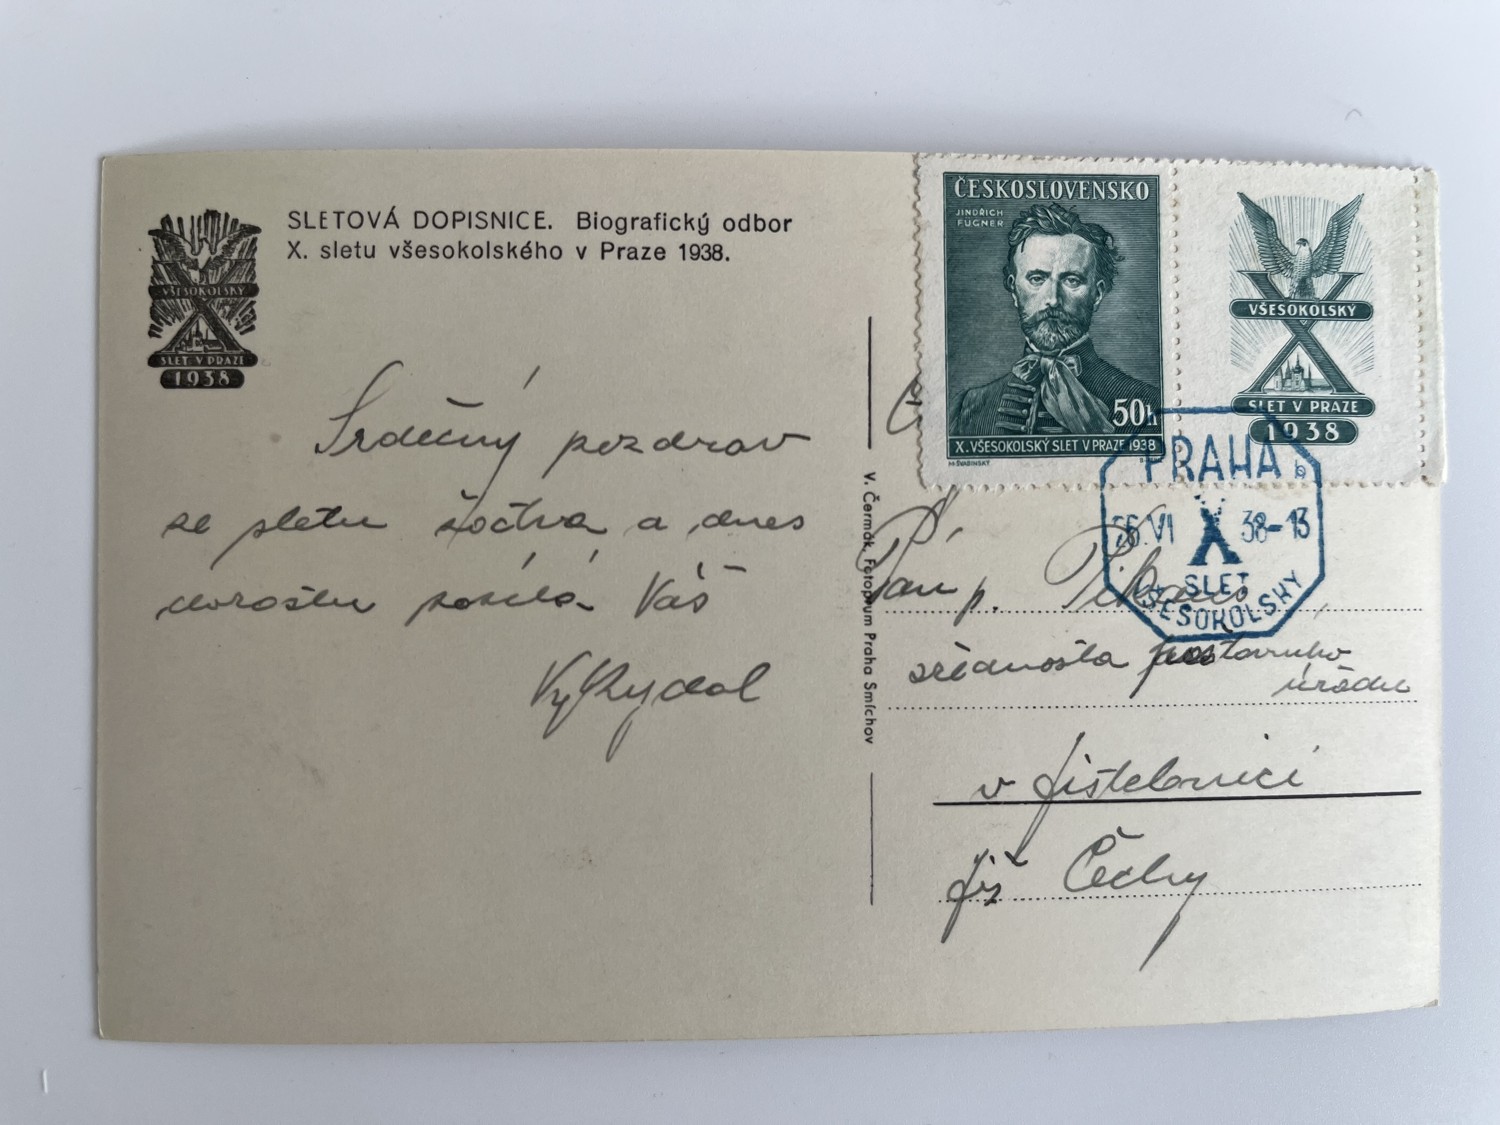 SLETOVÁ DOPISNICE. Biografický odbor
X. sletu všesokolského v Praze 1938.
VŠESOKOLSKÝ
X
SLET V PRAZE
1938
Srdečný pozdrav
se sletu žactva a dnes
dorostu posílá Váš
V. Čermák, Fotoprum Praha Smíchov
ČESKOSLOVENSKO
JINDŘICH
FÜGNER
50h
X. VŠESOKOLSKÝ SLET V PRAZE 1938
M. ŠVABINSKÝ
VŠESOKOLSKÝ
X
SLET V PRAZE
1938
PRAHA
VI 38-13
X
SLET
VŠESOKOLSKÝ
Pan p.
poštovního
úřadu
v Jistebnici
Již Čechy